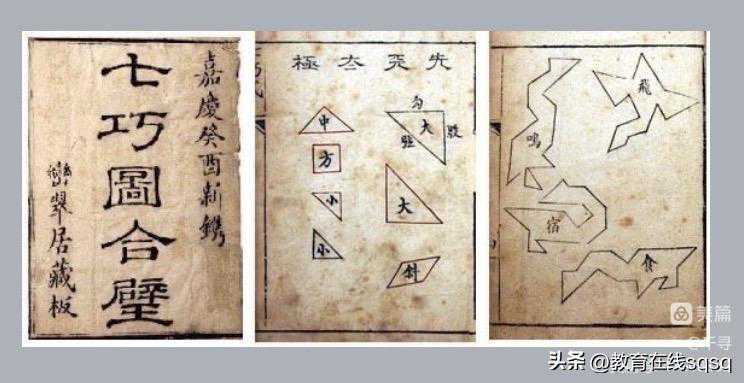 嘉慶癸酉新鐫
七巧圖合璧
翠居藏板
先天太極
勾
大
股
中
方
小
小
大
斜
飛
鳴
宿
食
美篇
@千寻
头条 @教育在线sqsq